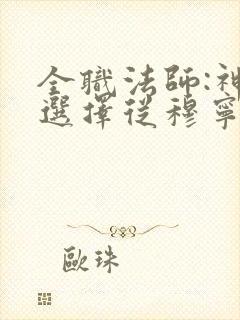 全職法師:神
選擇從穆寧
歐珠